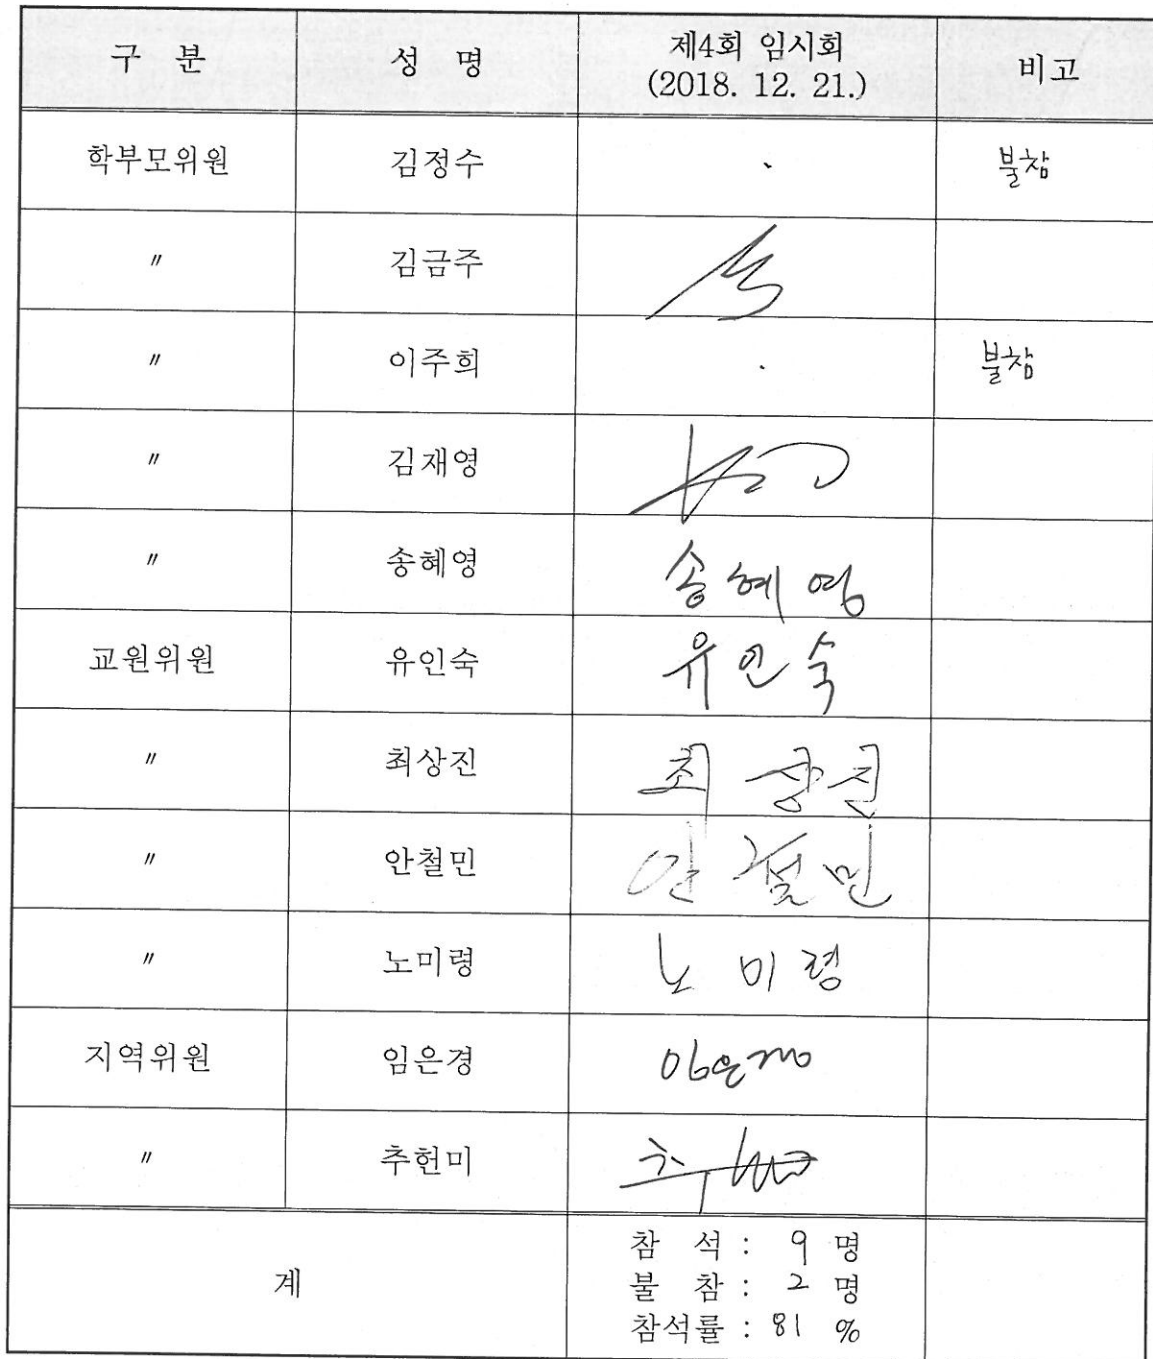 구 분 성 명 제4회 임시회 (2018. 12. 21.) 비고
학부모위원 김정수 불참
〃 김금주
〃 이주희 불참
〃 김재영
〃 송혜영 송혜영
교원위원 유인숙 유인숙
〃 최상진 최상진
〃 안철민 안철민
〃 노미령 노미령
지역위원 임은경
〃 추헌미
계
참 석 : 9 명
불 참 : 2 명
참석률 : 81 %